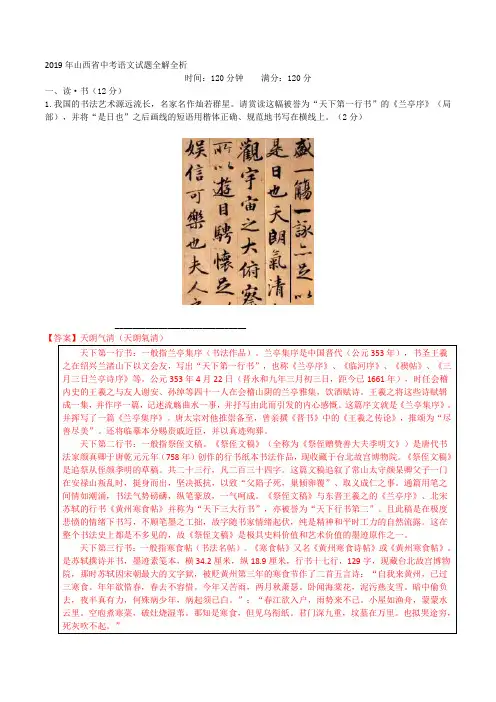 2019年山西省中考语文试题全解全析
时间:120分钟 满分:120分
一、读·书(12分)
1.我国的书法艺术源远流长,名家名作灿若群星。请赏读这幅被誉为“天下第一行书”的《兰亭序》(局
部),并将“是日也”之后画线的短语用楷体正确、规范地书写在横线上。(2分)
盛一觴一詠亦足以
是日也天朗氣清
觀宇宙之大俯察
所以遊目騁懷足
娛信可樂也夫人之
【答案】天朗气清(天朗氣清)
天下第一行书:一般指兰亭集序(书法作品)。兰亭集序是中国晋代(公元353年),书圣王羲
之在绍兴兰渚山下以文会友,写出“天下第一行书”,也称《兰亭序》、《临河序》、《禊帖》、《三
月三日兰亭诗序》等。公元353年4月22日(晋永和九年三月初三日,距今已1661年),时任会稽
内史的王羲之与友人谢安、孙绰等四十一人在会稽山阴的兰亭雅集,饮酒赋诗。王羲之将这些诗赋辑
成一集,并作序一篇,记述流觞曲水一事,并抒写由此而引发的内心感慨。这篇序文就是《兰亭集序》。
并挥写了一篇《兰亭集序》。唐太宗对他推崇备至,曾亲撰《晋书》中的《王羲之传论》,推颂为“尽
善尽美”。还将临摹本分赐贵戚近臣,并以真迹殉葬。
天下第二行书:一般指祭侄文稿。《祭侄文稿》(全称为《祭侄赠赞善大夫季明文》)是唐代书
法家颜真卿于唐乾元元年(758年)创作的行书纸本书法作品,现收藏于台北故宫博物院。《祭侄文稿》
是追祭从侄颜季明的草稿。共二十三行,凡二百三十四字。这篇文稿追叙了常山太守颜杲卿父子一门
在安禄山叛乱时,挺身而出,坚决抵抗,以致“父陷子死,巢倾卵覆”、取义成仁之事。通篇用笔之
间情如潮涌,书法气势磅礴,纵笔豪放,一气呵成。《祭侄文稿》与东晋王羲之的《兰亭序》、北宋
苏轼的行书《黄州寒食帖》并称为“天下三大行书”,亦被誉为“天下行书第二”。且此稿是在极度
悲愤的情绪下书写,不顾笔墨之工拙,故字随书家情绪起伏,纯是精神和平时工力的自然流露。这在
整个书法史上都是不多见的,故《祭侄文稿》是极具史料价值和艺术价值的墨迹原作之一。
天下第三行书:一般指寒食帖(书法名帖)。《寒食帖》又名《黄州寒食诗帖》或《黄州寒食帖》。
是苏轼撰诗并书,墨迹素笺本,横34.2厘米,纵18.9厘米,行书十七行,129字,现藏台北故宫博物
院。那时苏轼因宋朝最大的文字狱,被贬黄州第三年的寒食节作了二首五言诗:“自我来黄州,已过
三寒食。年年欲惜春,春去不容惜。今年又苦雨,两月秋萧瑟。卧闻海棠花,泥污燕支雪。暗中偷负
去,夜半真有力,何殊病少年,病起须已白。”;“春江欲入户,雨势来不已。小屋如渔舟,濛濛水
云里。空庖煮寒菜,破灶烧湿苇。那知是寒食,但见乌衔纸。君门深九重,坟墓在万里。也拟哭途穷,
死灰吹不起。”